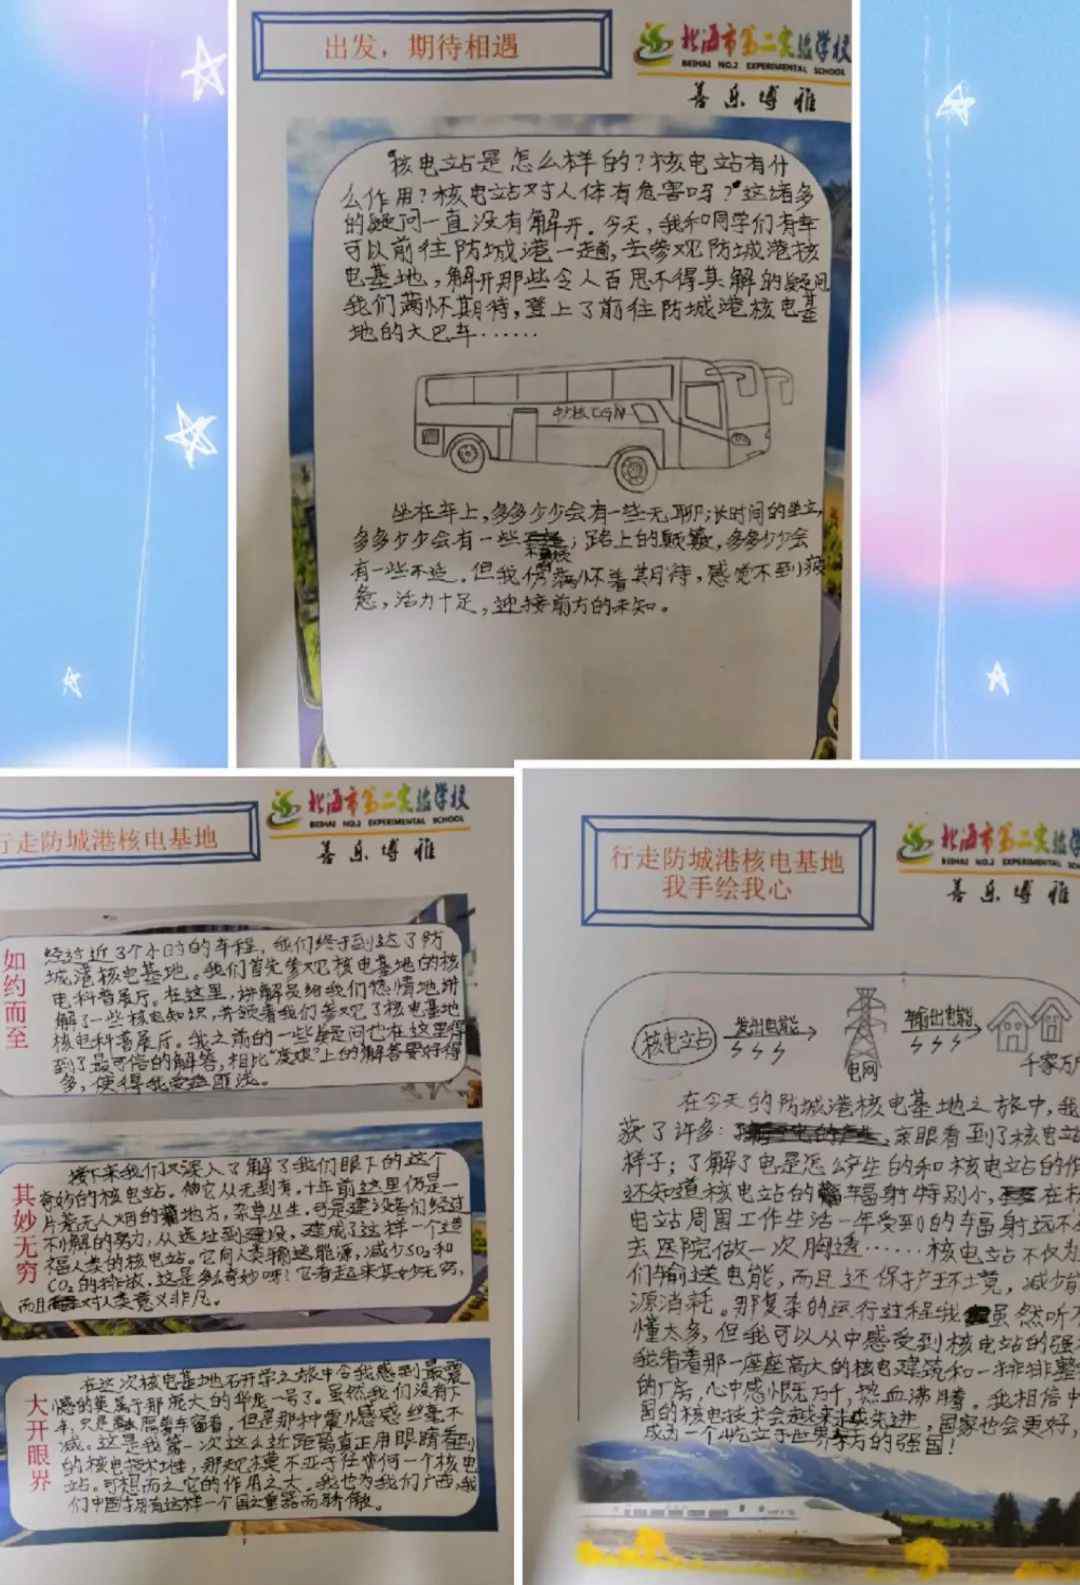 出发，期待相遇
北海市第二实验学校
BEIHAI NO.2 EXPERIMENTAL SCHOOL
善乐博雅
核电站是怎么样的？核电站有什
么作用？核电站对人体有危害吗？这诸多
的疑问一直没有解开。今天，我和同学们有幸
可以前往防城港一趟，去参观防城港核
电基地，解开那些令人百思不得其解的疑问
我们满怀期待，登上了前往防城港核电基
地的大巴车……
中广核CGN
坐在车上，多多少少会有一些无聊；长时间的坐立，
多多少少会有一些；路上的颠簸，多多少少会
有一些不适。但我满怀着期待，感觉不到疲
惫，活力十足，迎接前方的未知。
行走防城港核电基地
北海市第二实验学校
BEIHAI NO.2 EXPERIMENTAL SCHOOL
善乐博雅
如约而至
经过近3个小时的车程，我们终于到达了防
城港核电基地。我们首先参观核电基地的核
电科普展厅。在这里，讲解员给我们热情地讲
解了一些核电知识，并领着我们参观了核电基地
核电科普展厅。我之前的一些疑问也在这里得
到了最可信的解答，相比“度娘”上的解答要好得
多，使得我受益匪浅。
其妙无穷
接下来我们又深入了解了我们眼下的这个
奇妙的核电站。它从无到有，十年前这里仍是一
片荒无人烟的地方，杂草丛生。可是建设者们经过
不懈的努力，从选址到建设，建成了这样一个造
福人类的核电站。它向人类输送能源，减少SO₂和
CO₂的排放，这是多么奇妙呀！它看起来其妙无穷，
而且对人类意义非凡。
大开眼界
在这次核电基地研学之旅中令我感到最震
撼的莫属于那庞大的华龙一号了。虽然我们没有下
车，只是隔着车窗看，但是那种震撼感丝毫不
减。这是我第一次这么近距离真正用眼睛看到
的核电基地，那规模不亚于任何一个核电
站。可想而之它的作用之大。我也为我们广西，我
们中国拥有这样一个国之重器而骄傲。
行走防城港核电基地
我手绘我心
北海市第二实验学校
BEIHAI NO.2 EXPERIMENTAL SCHOOL
善乐博雅
核电站
发出电能
电网
输出电能
千家万户
在今天的防城港核电基地之旅中，我
获了许多：亲眼看到了核电站
样子；了解了电是怎么产生的和核电站的作
还知道核电站的辐射特别小，在核
电站周围工作生活一年受到的辐射远不
去医院做一次胸透……核电站不仅为
们输送电能，而且还保护环境，减少
源消耗。那复杂的运行过程我虽然听不
懂太多，但我可以从中感受到核电站的强
我看着那一座座高大的核电建筑和一排排整
的厂房，心中感慨万千，热血沸腾。我相信中
国的核电技术会越来越先进，国家也会更好，
成为一个屹立于世界东方的强国！